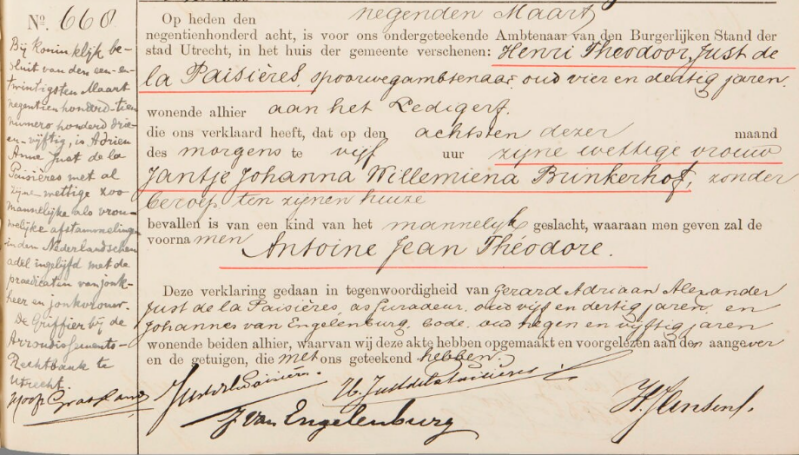 No. 660
Bij koninklijk be-
sluit van den een-en-
twintigsten Maart
negentienhonderd-tien
numero honderd drie-
en-vijftig, is Adrien
Anne Just de la
Paisières met al
zijne wettige zoo
mannelijke als vrou-
welijke afstammelingen
in den Nederlandschen
adel ingelijfd met de
praedicaten van jonk-
heer en jonkvrouw.
De Griffier bij de
Arrondissements-
Rechtbank te
Utrecht
Op heden den negenden Maart
negentienhonderd acht, is voor ons ondergeteekende Ambtenaar van den Burgerlijken Stand der
stad Utrecht, in het huis der gemeente verschenen: Henri Theodoor, Just de
la Paisières, spoorwegambtenaar, oud vier en dertig jaren,
wonende alhier aan het Ledigerf,
die ons verklaard heeft, dat op den achtsten dezer maand
des morgens te vijf uur zijne wettige vrouw
Jantje Johanna Willemiena Brinkerhof, zonder
beroep, ten zijnen huize
bevallen is van een kind van het mannelijk geslacht, waaraan men geven zal de
voornamen Antoine Jean Théodore.
Deze verklaring gedaan in tegenwoordigheid van Gerard Adriaan Alexander
Just de la Paisières, assuradeur, oud vijf en dertig jaren, en
Johannes van Engelenburg, bode, oud negen en vijftig jaren
wonende beiden alhier, waarvan wij deze akte hebben opgemaakt en voorgelezen aan den aangever
en de getuigen, die met ons geteekend hebben.
H. Just de la Paisières
J. van Engelenburg